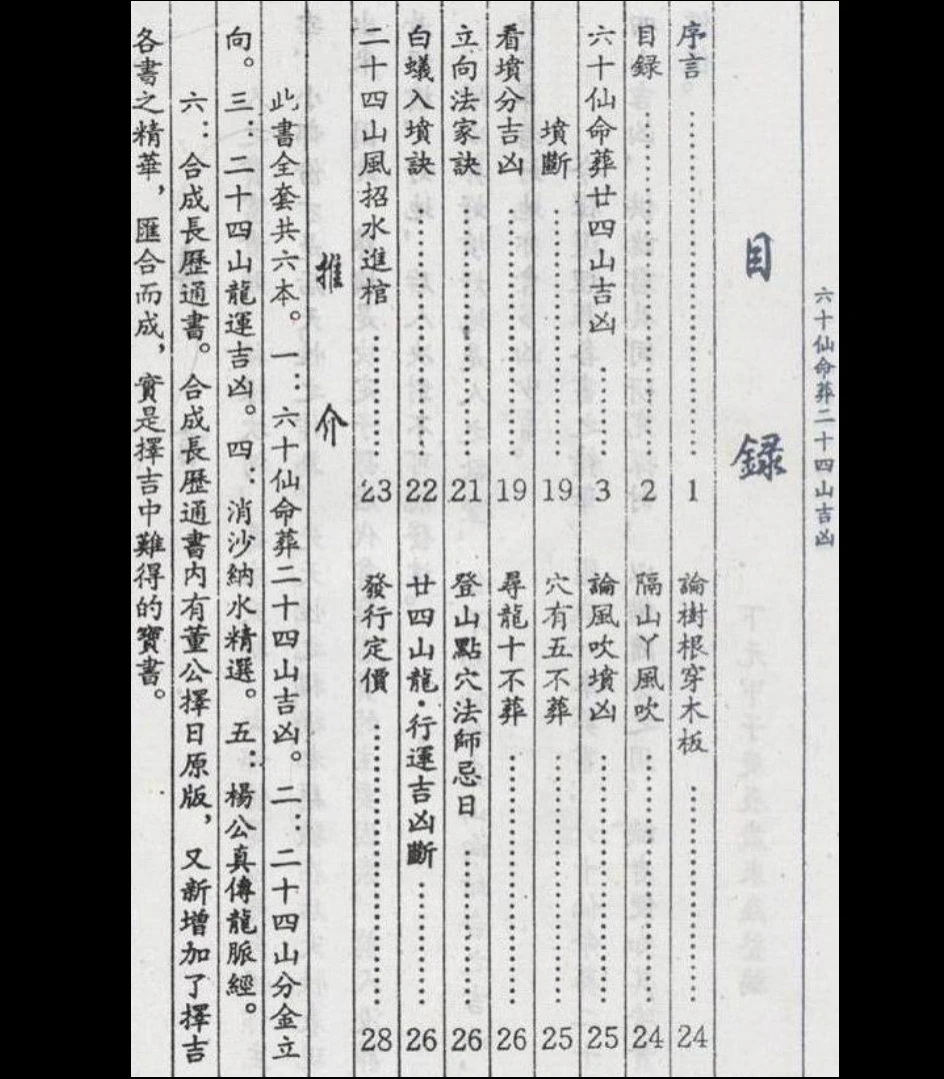 六十仙命葬二十四山吉凶
目錄
序言……………1
目錄……………2
六十仙命葬廿四山吉凶……3
墳斷……………19
看墳分吉凶……………19
立向法家訣……………21
白蟻入墳訣……………22
二十四山風招水進棺……………23
論樹根穿木板……………24
隔山丫風吹……………24
論風吹墳凶……………25
穴有五不葬……………25
尋龍十不葬……………26
登山點穴法師忌日……………26
廿四山龍·行運吉凶斷……………26
發行定價……………28
推介
此書全套共六本。一:六十仙命葬二十四山吉凶。二:二十四山分金立
向。三:二十四山龍運吉凶。四:消沙納水精選。五:楊公真傳龍脈經。
六:合成長歷通書。合成長歷通書内有董公擇日原版,又新增加了擇吉
各書之精華,匯合而成,實是擇吉中難得的寶書。